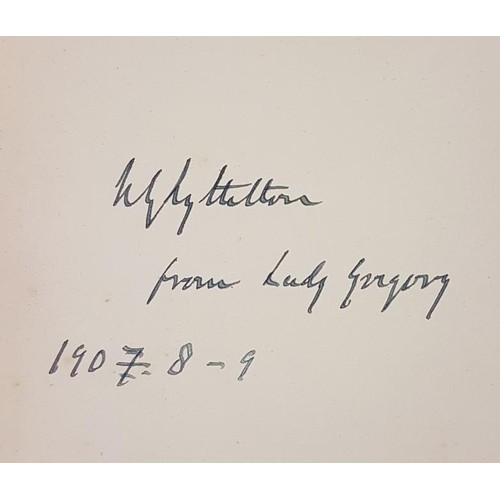 NG Lyttelton
from Lady Gregory
1907-8-9